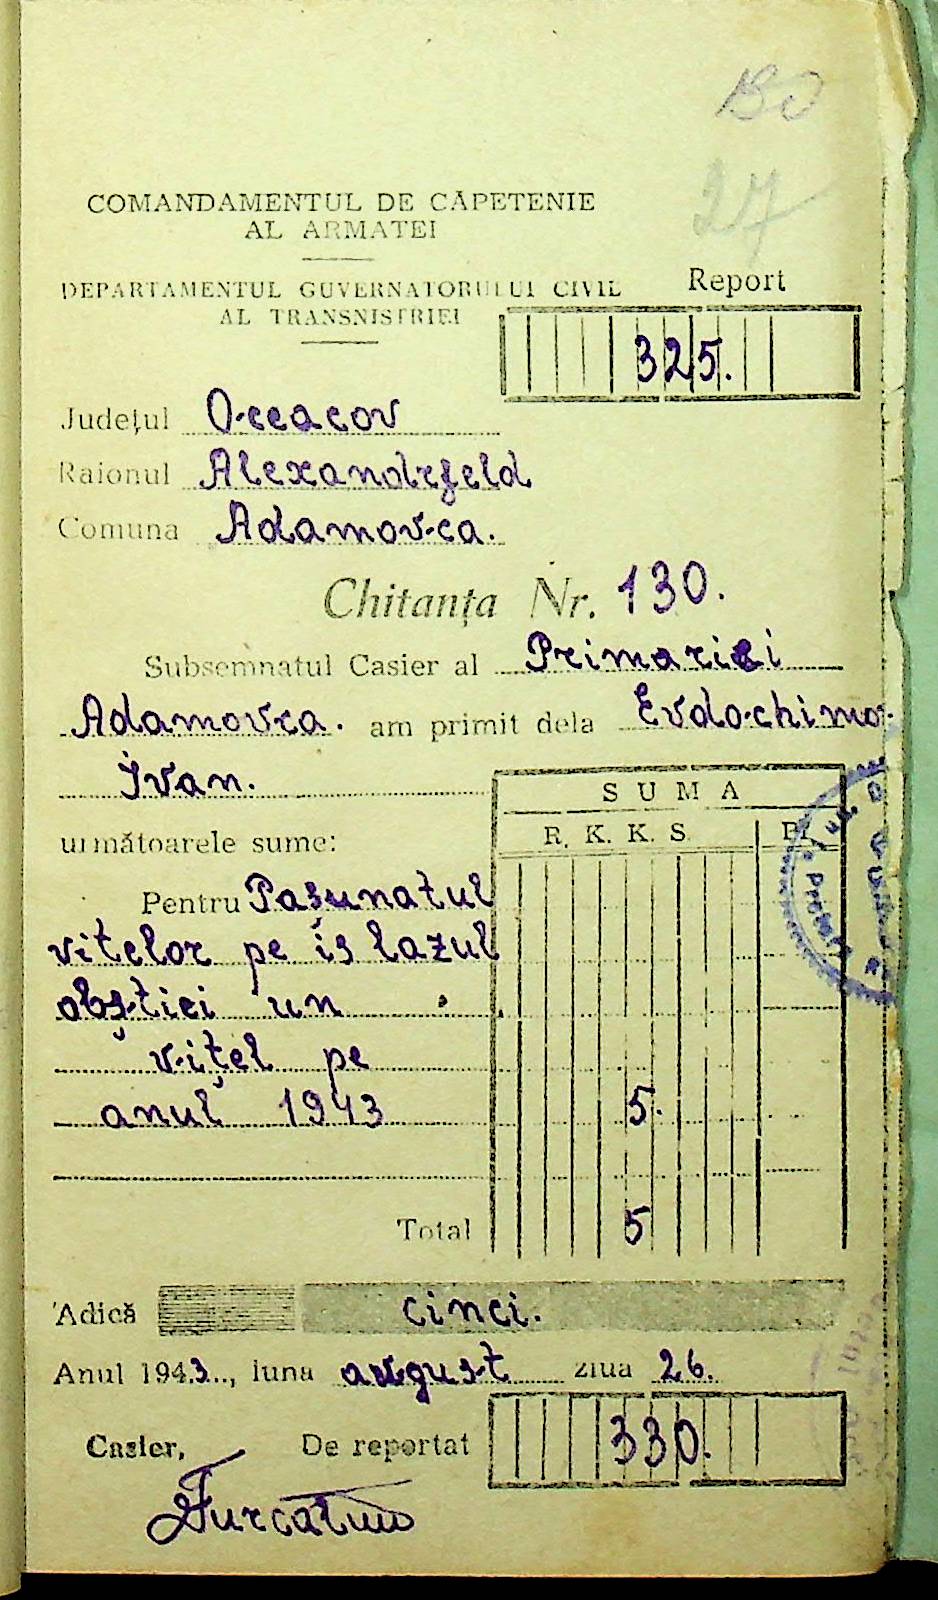 130
27
COMANDAMENTUL DE CĂPETENIE
AL ARMATEI
DEPARTAMENTUL GUVERNATORULUI CIVIL
AL TRANSNISTRIEI
Report
325.
Județul Oceacov
Raionul Alexandrfeld
Comuna Adamovca.
Chitanța Nr. 130.
Subsemnatul Casier al Primariei
Adamovca. am primit dela Evdochimo
Ivan.
următoarele sume:
SUMA
R. K. K. S. Pf.
Pentru Pașunatul
vitelor pe islazul
obștiei un
vițel pe
anul 1943 5.
Total 5
Adică cinci.
Anul 1943.., luna avgust ziua 26.
Casier, De reportat 330.